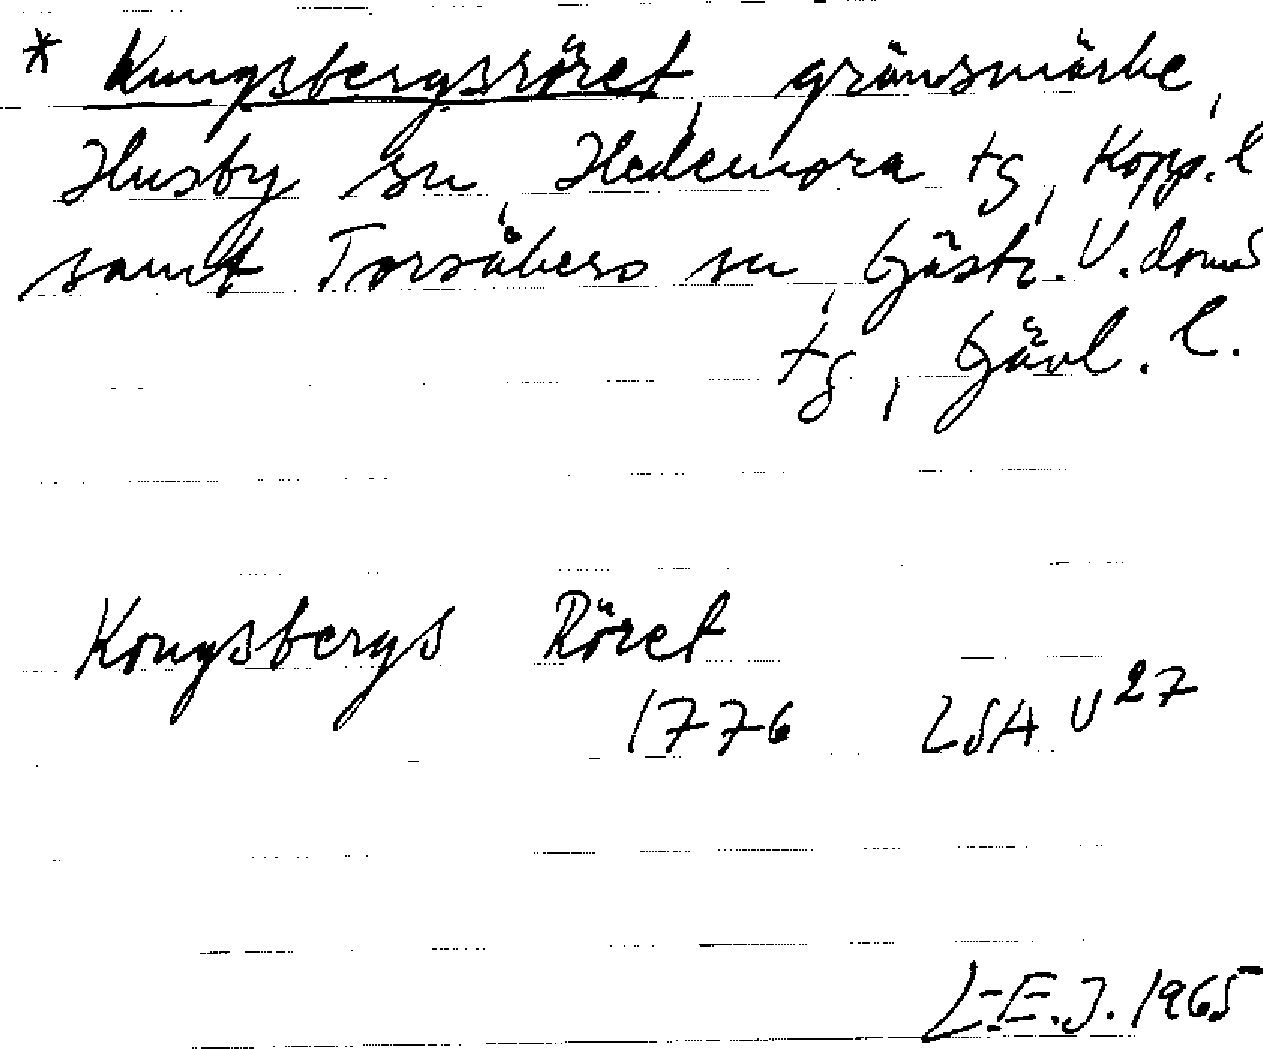 * Kungsbergsröret, gränsmärke,
Husby sn, Hedemora tg, Kopp. l
samt Torsåkers sn, Gästr. V. doms
tg, Gävl. l.
Kongsbergs Röret
1776 LSA U 27
L-E.J. 1965